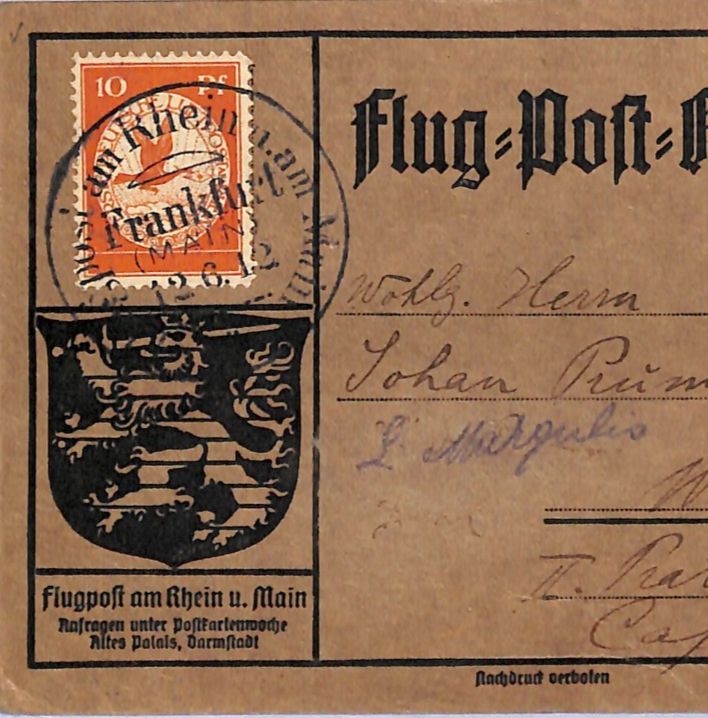 10 Pf
Flugpost am Rhein u. am Main
Frankfurt
(MAIN)
12.6.12
Flug=Post=
Wohlg. Herrn
Johan
L. Margulis
II.
Flugpost am Rhein u. Main
Anfragen unter Postkartenwoche
Altes Palais, Darmstadt
Nachdruck verboten